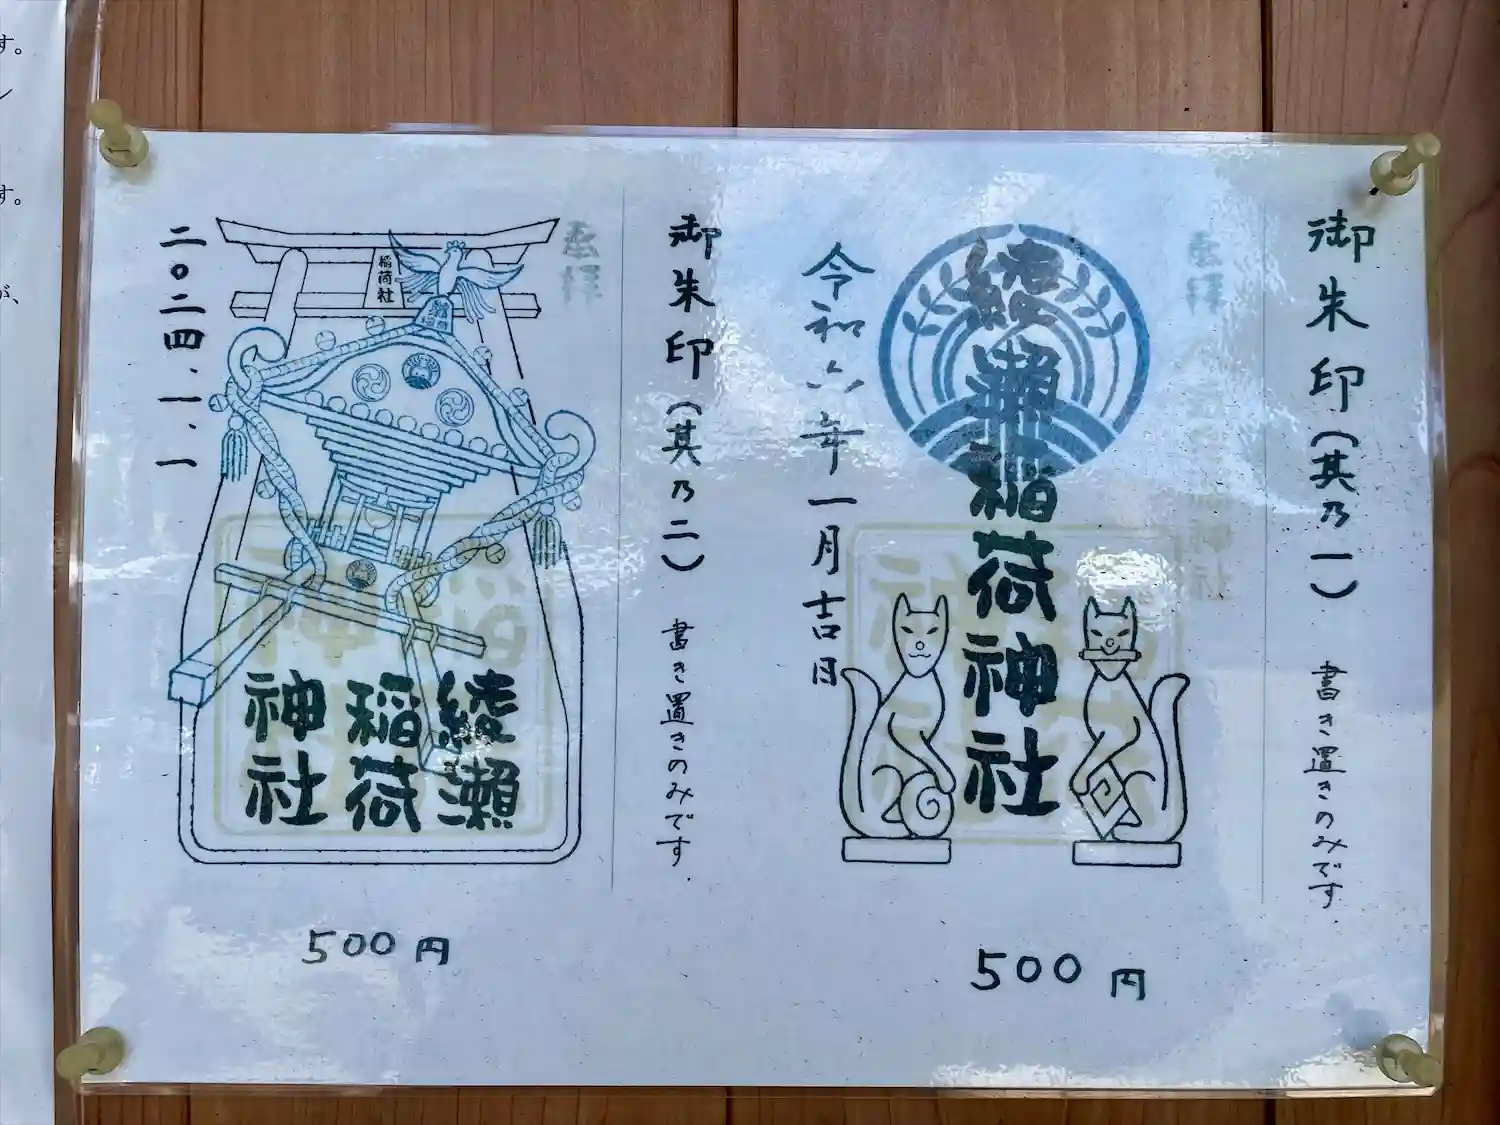 御朱印(其乃一) 書き置きのみです.
奉拝
綾瀬稲荷神社
令和六年一月吉日
500円
御朱印(其乃二) 書き置きのみです.
奉拝
稲荷社
綾瀬
稲荷
神社
二〇二四.一.一
500円
す。
ン
す。
が、